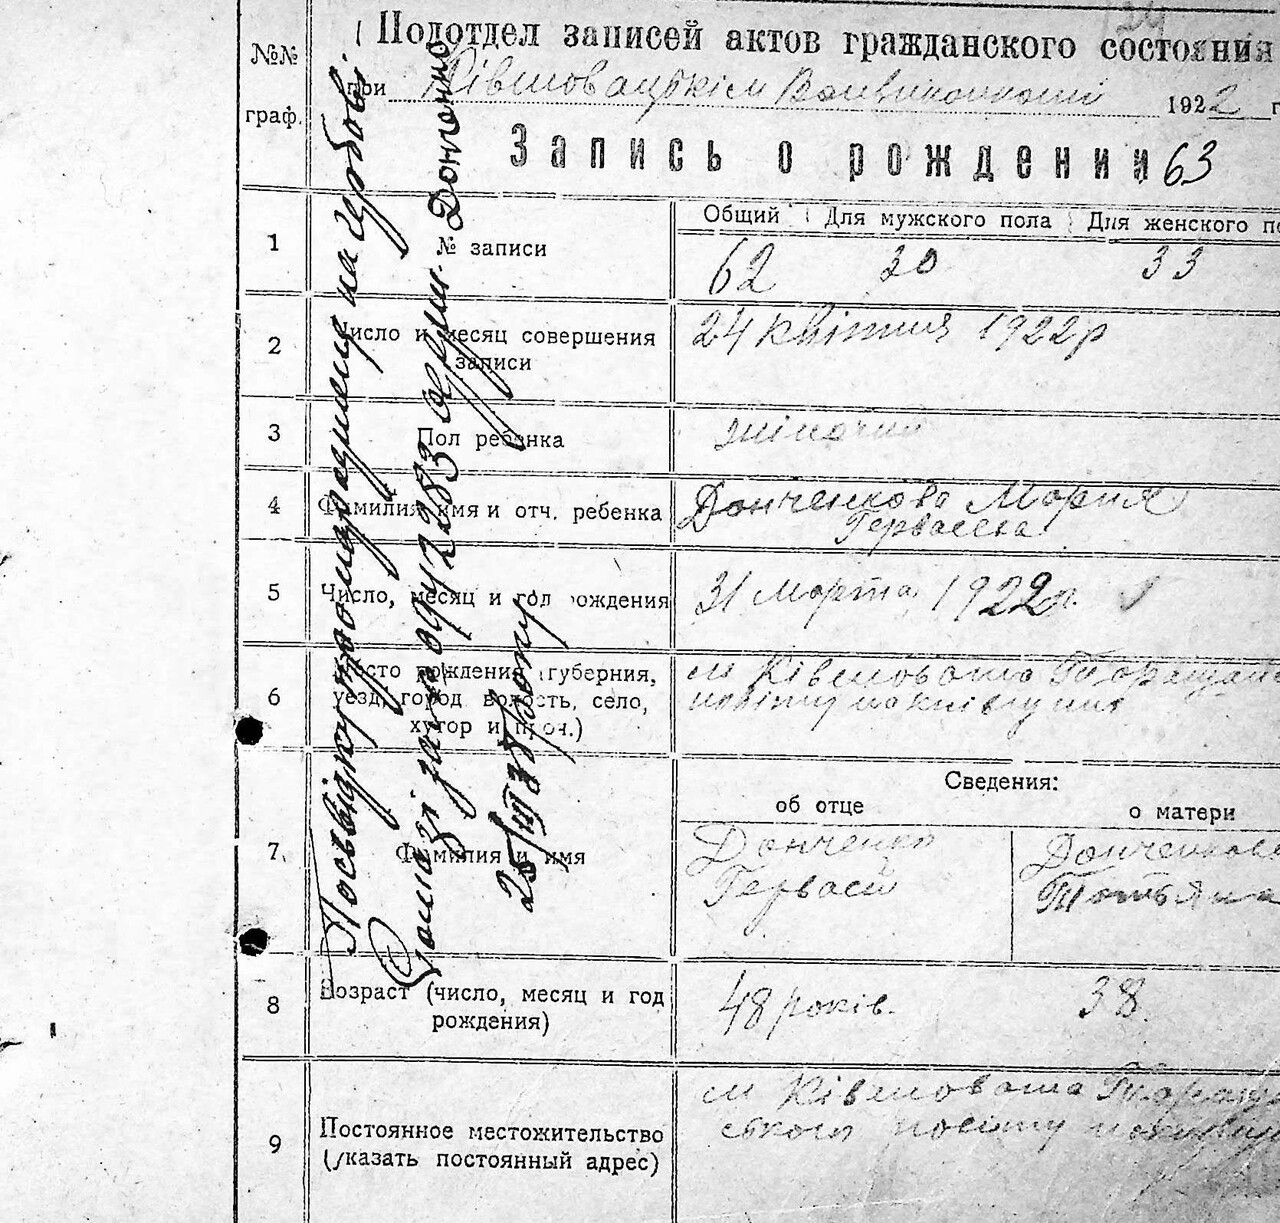 Подотдел записей актов гражданского состояния
№№
граф.
при Ківшовацткім 1922 г
Запись о рождении 63
1
№ записи
Общий Для мужского пола Для женского по
62 30 33
2
Число и месяц совершения
записи
24 квітня 1922 р
3
Пол ребенка
жіночий
4
Фамилия, имя и отч. ребенка
Донченкова Мария
Гервасева
5
Число, месяц и год рождения
31 марта 1922 г.
6
Место рождения (губерния,
уезд, город волость, село,
хутор и проч.)
м Ківшовата Таращанс
повіту на київщині
Сведения:
об отце
о матери
7
Фамилия и имя
Донченко
Гервасй
Донченкова
Татьяна
8
Возраст (число, месяц и год
рождения)
48 років.
38
9
Постоянное местожительство
(указать постоянный адрес)
м Ківшовата Таращан
ского повіту
Посвідку на гербові
за № 094283 Донченко
25/III 38 року